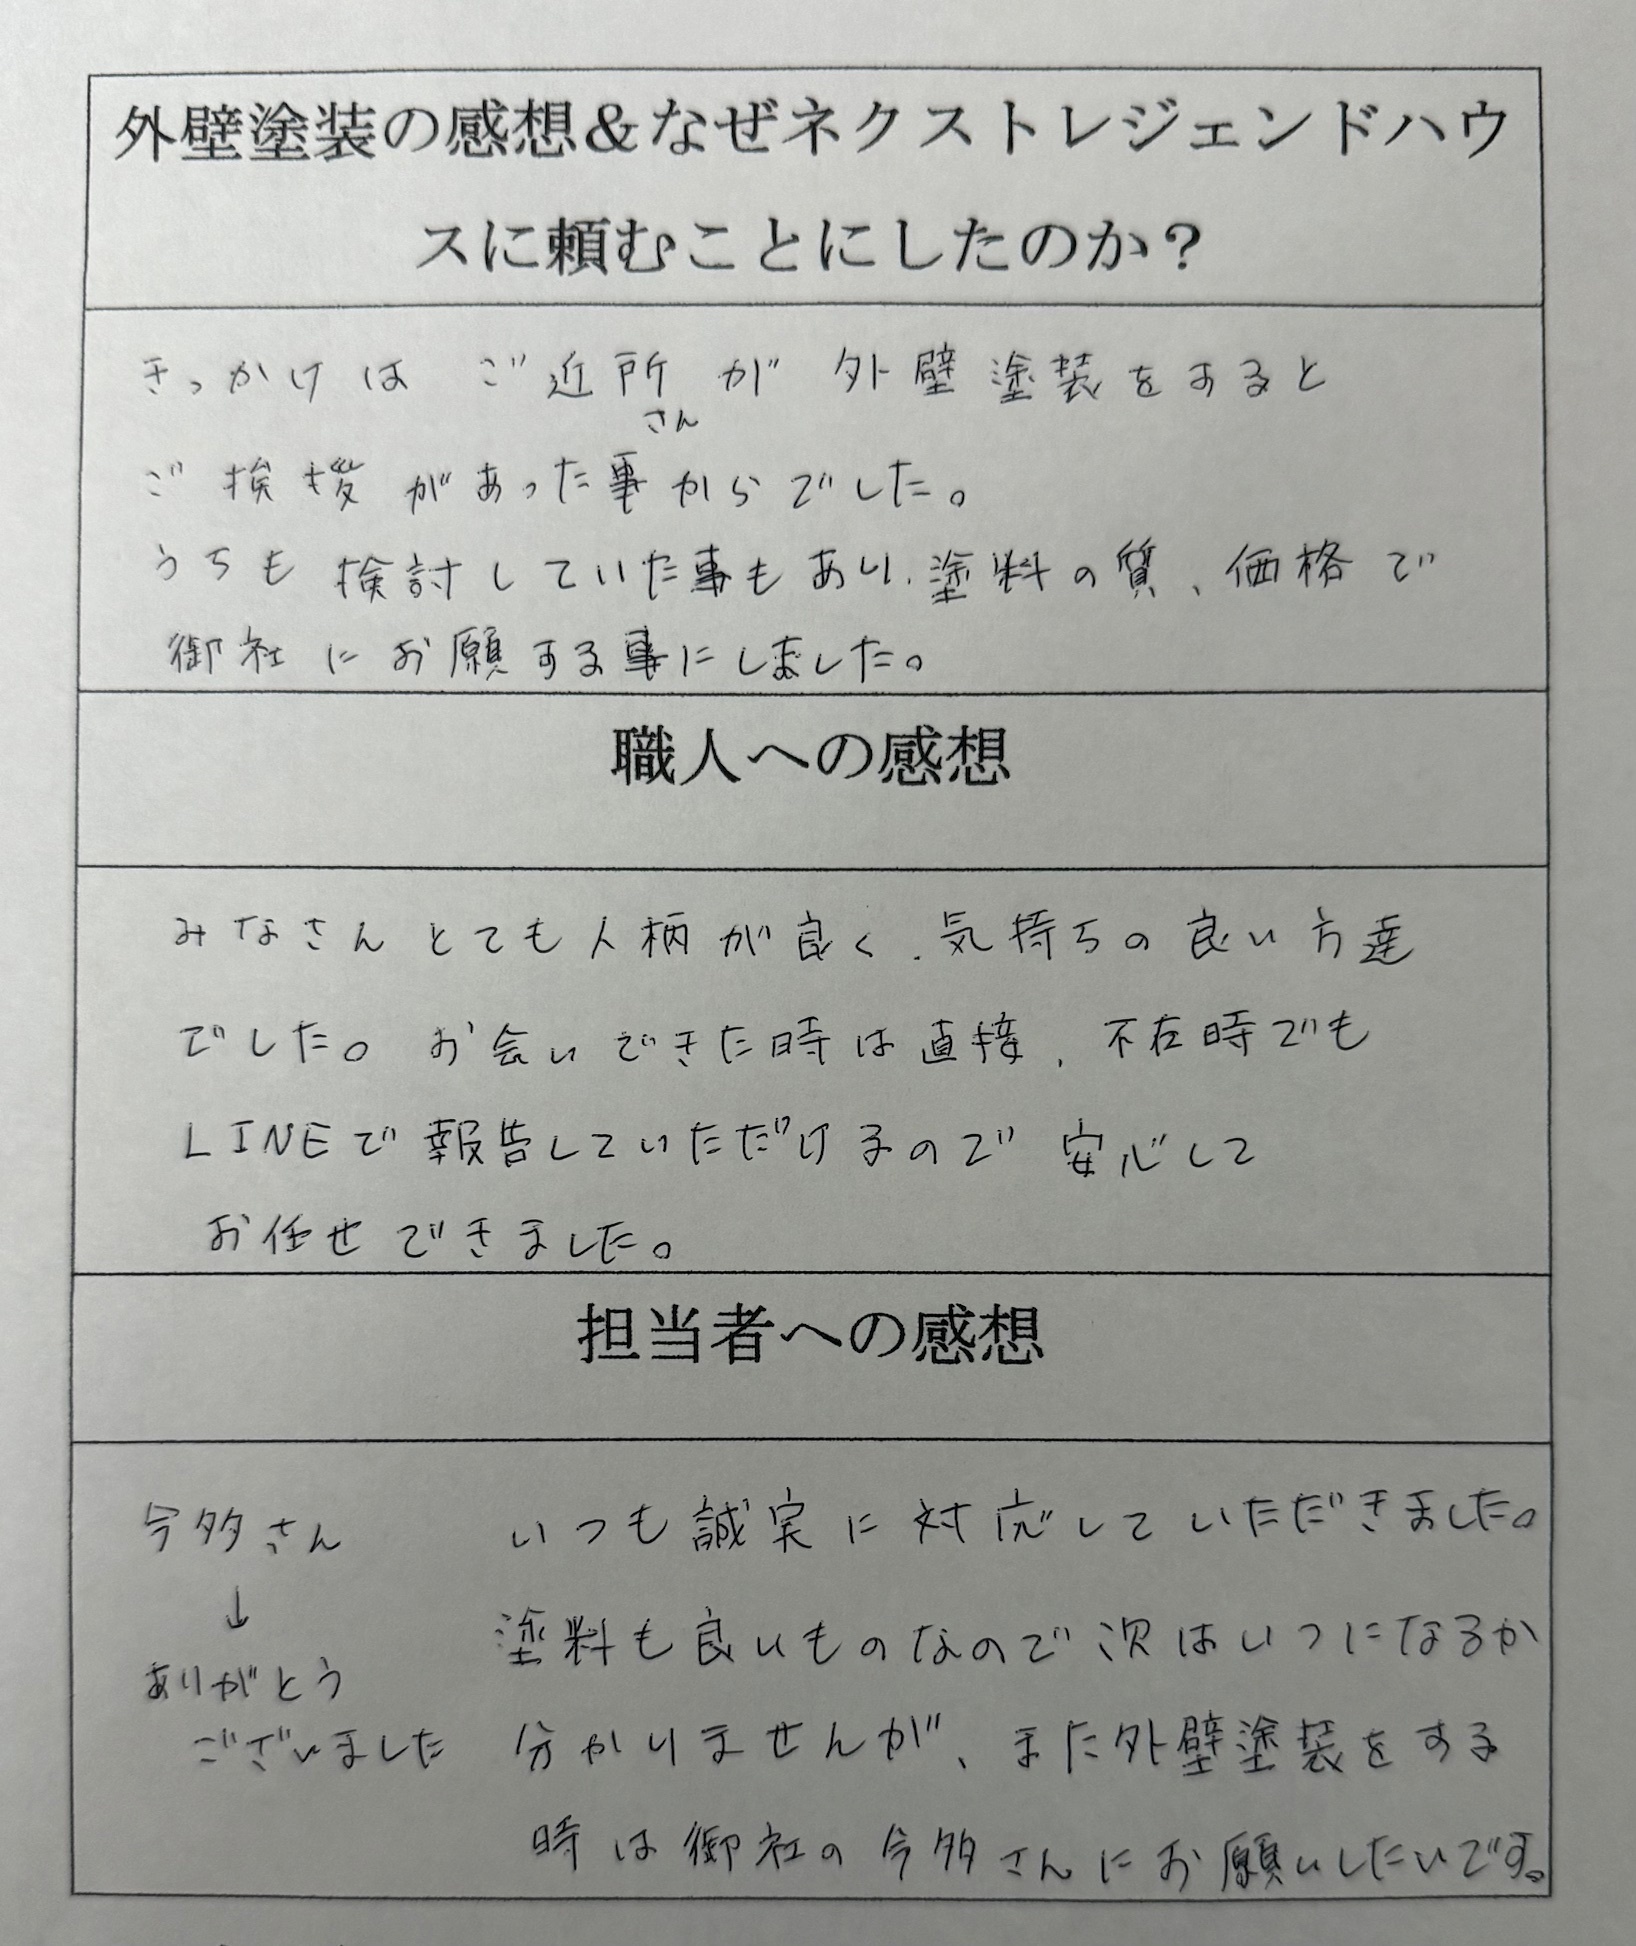 外壁塗装の感想＆なぜネクストレジェンドハウ
スに頼むことにしたのか？
きっかけは ご近所が 外壁塗装をすると
さん
ご挨拶があった事からでした。
うちも検討していた事もあり、塗料の質、価格で
御社にお願する事にしました。
職人への感想
みなさんとても人柄が良く、気持ちの良い方達
でした。お会いできた時は直接、不在時でも
LINEで報告していただけるので安心して
お任せできました。
担当者への感想
今多さん
↓
ありがとう
ございました
いつも誠実に対応していただきました。
塗料も良いものなので次はいつになるか
分かりませんが、また外壁塗装をする
時は御社の今多さんにお願いしたいです。